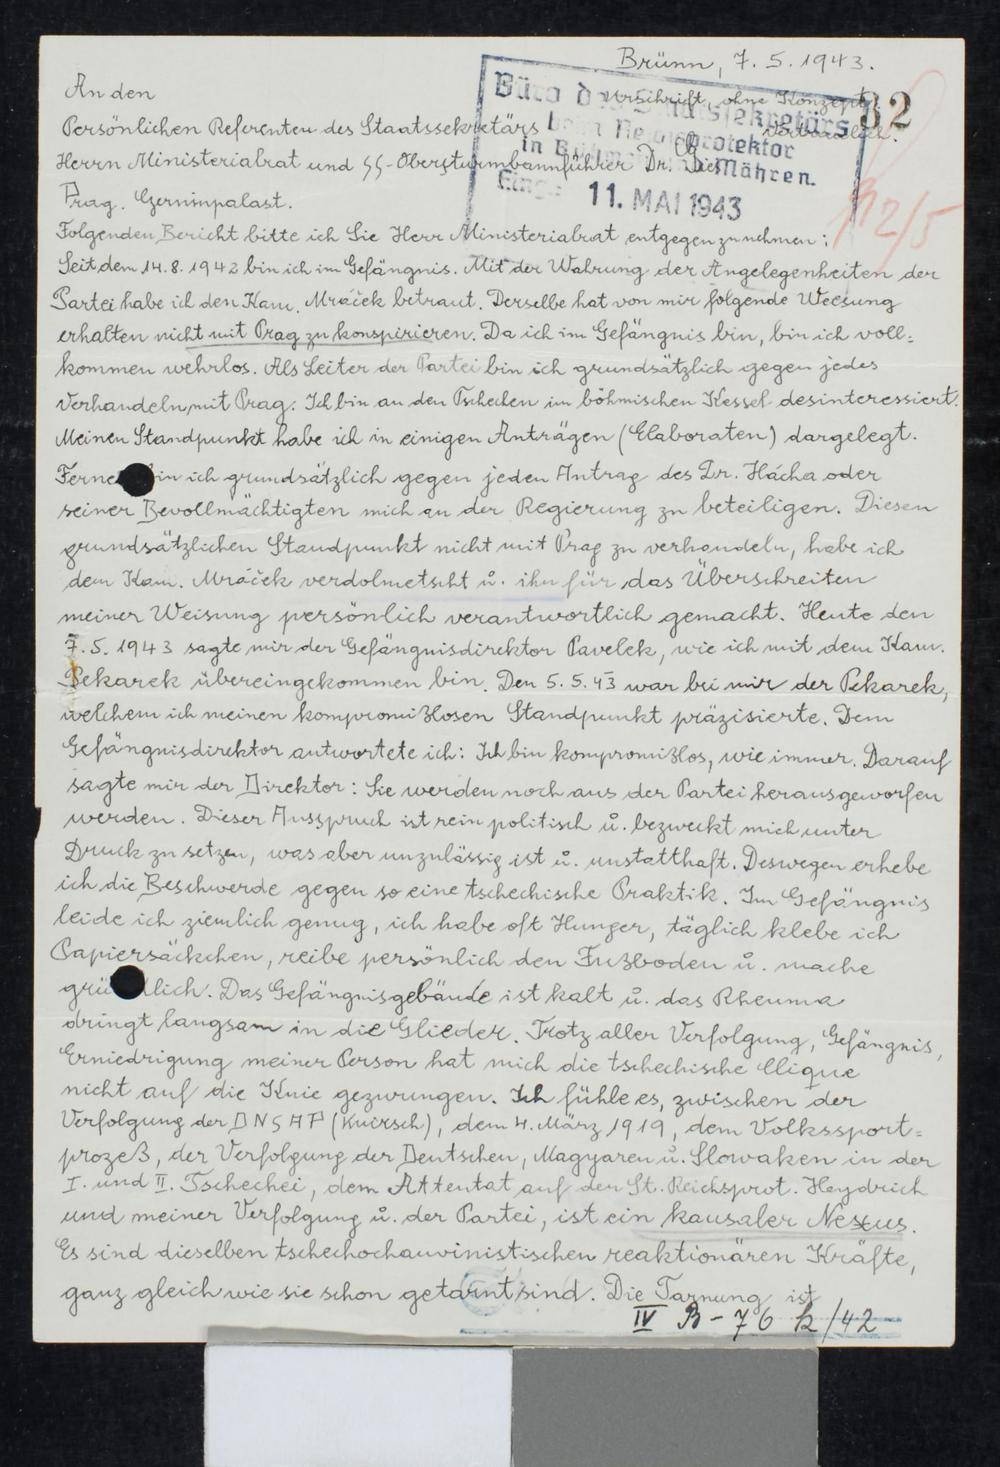 Brünn, 7.5.1943.
An den
Urschrift, ohne Konzept.
32
Persönlichen Referenten des Staatssekretärs
Büro des Staatssekretärs
beim Reichsprotektor
in Böhmen und Mähren.
Eing.: 11. MAI 1943
Herrn Ministerialrat und SS-Obersturmbannführer Dr. Gies
Prag. Czerninpalast.
12/5
Folgenden Bericht bitte ich Sie Herr Ministerialrat entgegenzunehmen:
Seit dem 14.8.1942 bin ich im Gefängnis. Mit der Wahrung der Angelegenheiten der
Partei habe ich den Kam. Mráček betraut. Derselbe hat von mir folgende Weisung
erhalten nicht mit Prag zu konspirieren. Da ich im Gefängnis bin, bin ich voll=
kommen wehrlos. Als Leiter der Partei bin ich grundsätzlich gegen jedes
Verhandeln mit Prag. Ich bin an den Tschechen im böhmischen Kessel desinteressiert.
Meinen Standpunkt habe ich in einigen Anträgen (Elaboraten) dargelegt.
Ferner bin ich grundsätzlich gegen jeden Antrag des Dr. Hácha oder
seiner Bevollmächtigten mich an der Regierung zu beteiligen. Diesen
grundsätzlichen Standpunkt nicht mit Prag zu verhandeln, habe ich
dem Kam. Mráček verdolmetscht u. ihn für das Überschreiten
meiner Weisung persönlich verantwortlich gemacht. Heute den
7.5.1943 sagte mir der Gefängnisdirektor Pavelek, wie ich mit dem Kam.
Pekarek übereingekommen bin. Den 5.5.43 war bei mir der Pekarek,
welchem ich meinen kompromißlosen Standpunkt präzisierte. Dem
Gefängnisdirektor antwortete ich: Ich bin kompromißlos, wie immer. Darauf
sagte mir der Direktor: Sie werden noch aus der Partei herausgeworfen
werden. Dieser Ausspruch ist rein politisch u. bezweckt mich unter
Druck zu setzen, was aber unzulässig ist u. unstatthaft. Deswegen erhebe
ich die Beschwerde gegen so eine tschechische Praktik. Im Gefängnis
leide ich ziemlich genug, ich habe oft Hunger, täglich klebe ich
Papiersäckchen, reibe persönlich den Fußboden u. mache
gründlich. Das Gefängnisgebäude ist kalt u. das Rheuma
dringt langsam in die Glieder. Trotz aller Verfolgung, Gefängnis,
Erniedrigung meiner Person hat mich die tschechische Clique
nicht auf die Knie gezwungen. Ich fühle es, zwischen der
Verfolgung der DNSAP (Knirsch), dem 4. März 1919, dem Volkssport=
prozeß, der Verfolgung der Deutschen, Magyaren u. Slowaken in der
I. und II. Tschechei, dem Attentat auf den St. Reichsprot. Heydrich
und meiner Verfolgung u. der Partei, ist ein kausaler Nexus.
Es sind dieselben tschechochauvinistischen reaktionären Kräfte,
ganz gleich wie sie schon getarnt sind. Die Tarnung ist
IV B-76 k/42